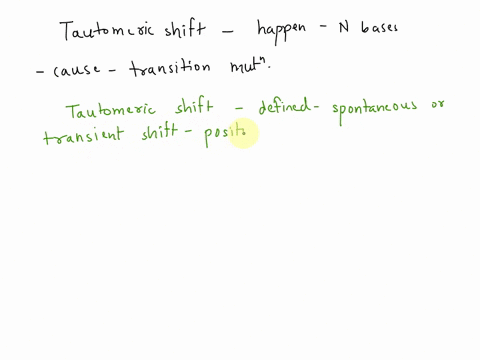 Tautomeric shift - happen - N bases
- cause - transition mutⁿ.
Tautomeric shift - defined - spontaneous or
transient shift - posit